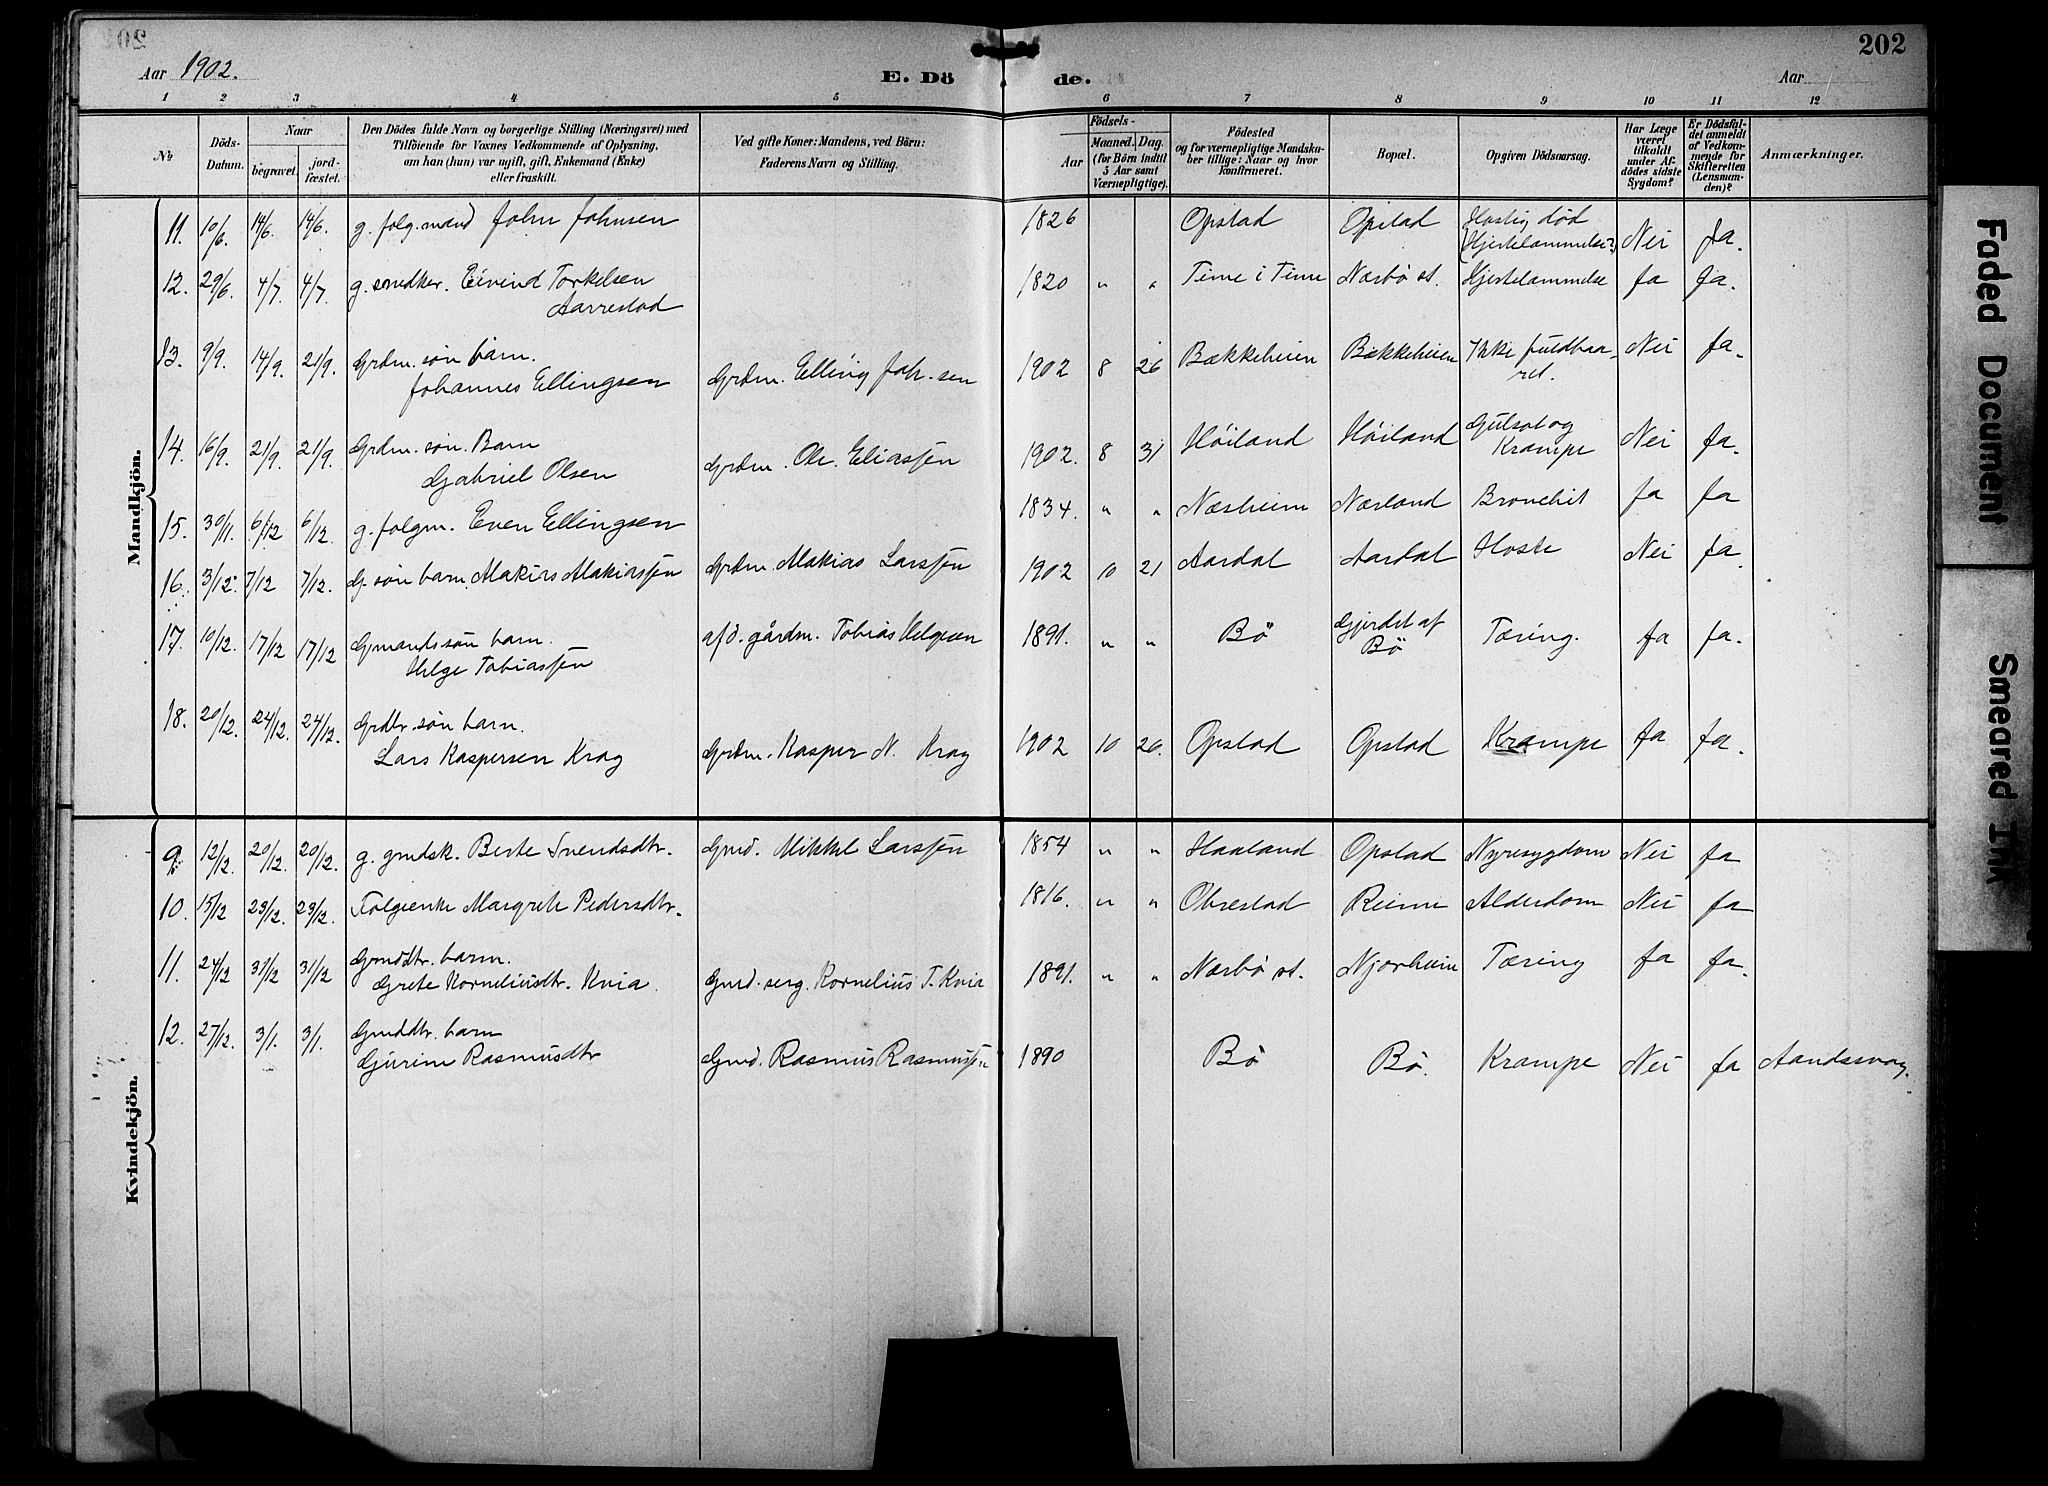 202
Aar 1902.
E. Dö de.
Aar
1 2 3 4 5 6 7 8 9 10 11 12
№
Döds-Datum.
Naar
begravet.
jordfæstet.
Den Dödes fulde Navn og borgerlige Stilling (Næringsvei) med
Tilföiende for Voxnes Vedkommende af Oplysning,
om han (hun) var ugift, gift, Enkemand (Enke)
eller fraskilt.
Ved gifte Koner: Mandens, ved Börn:
Faderens Navn og Stilling.
Födsels-
Aar
Maaned. Dag.
(for Börn indtil
5 Aar samt
Værnepligtige).
Födested
og for værnepligtige Mandskaber
tillige: Naar og hvor
konfirmeret.
Bopæl.
Opgiven Dödsaarsag.
Har Læge
været
tilkaldt
under Afdödes
sidste
Sygdom?
Er Dödsfaldet
anmeldt
af Vedkommende
for
Skifteretten
(Lensmanden)?
Anmærkninger.
Mandkjön.
11. 10/6. 14/6. 14/6. g. folg.mand John Johnsen 1826 Opstad Opstad Hastig død (Hjertelammelse?) Nei Ja.
12. 29/6. 4/7. 4/7. g. snedker. Eivind Torkelsen
Aarrestad 1820 " " Time i Time Nærbö st. Hjertelammelse Ja Ja.
13. 9/9. 14/9. 21/9. Grdm. søn barn.
Johannes Ellingsen Grdm. Elling Joh.sen 1902 8 26 Bækkeheien Bækkeheien Ikke fuldbaaret. Nei Ja.
14. 16/9. 21/9. 21/9. Grdm. søn. Barn
Gabriel Olsen Grdm. Ole Eliassen 1902. 8 31 Höiland Höiland Gulsot og Krampe Nei Ja.
15. 30/11. 6/12 6/12. g. folgm. Even Ellingsen 1834. " " Næsheim Nærland Bronchit Ja Ja
16. 3/12. 7/12 7/12. G. søn barn Makias Makiassen Grdm. Makias Larssen 1902 10 21 Aardal Aardal Hoste Nei Ja.
17. 10/12. 17/12 17/12 Gmands søn barn.
Helge Tobiassen afd. gårdm. Tobias Helgesen 1891. " " Bö Gjerdet af Bö Tæring. Ja Ja.
18. 20/12. 24/12. 24/12. Grdbr. søn barn.
Lars Kaspersen Krag Grdm. Kasper N. Krag 1902 10 26. Opstad Opstad Krampe Ja Ja.
Kvindekjön.
9. 12/12. 20/12. 20/12. g. gmdsk. Berte Svendsdtr. Gmd. Mikkel Larssen 1854 " " Haaland Opstad Nyresygdom Nei Ja
10. 15/12 23/12. 23/12. Folgienke Margrete Pedersdtr. 1816. " " Obrestad Reime Alderdom Nei Ja
11. 24/12 31/12 31/12 Gmddtr. barn.
Grete Korneliusdtr. Kvia. Gmd. serg. Kornelius T. Kvia 1891. " " Nærbö st. Njærheim Tæring Ja Ja.
12. 27/12. 3/1. 3/1. Gmddtr. barn
Gjurine Rasmusdtr Gmd. Rasmus Rasmussen 1890 Bö Bö. Krampe Nei Ja Aandssvag.
Faded Document
Smeared Ink